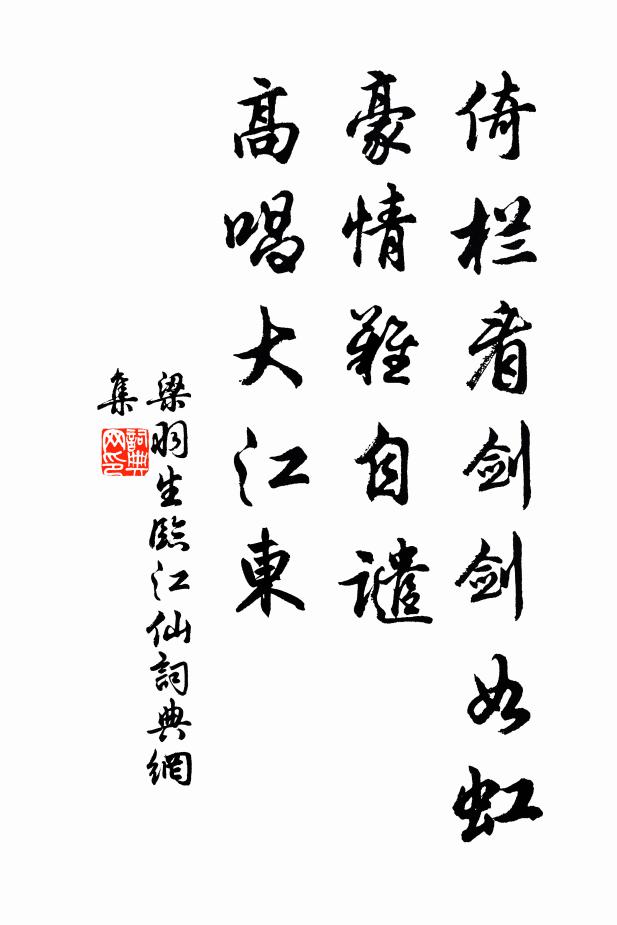 倚栏看剑剑如虹
豪情難自谴
高唱大江東
梁羽生臨江仙詞典網
集
詞典
网印